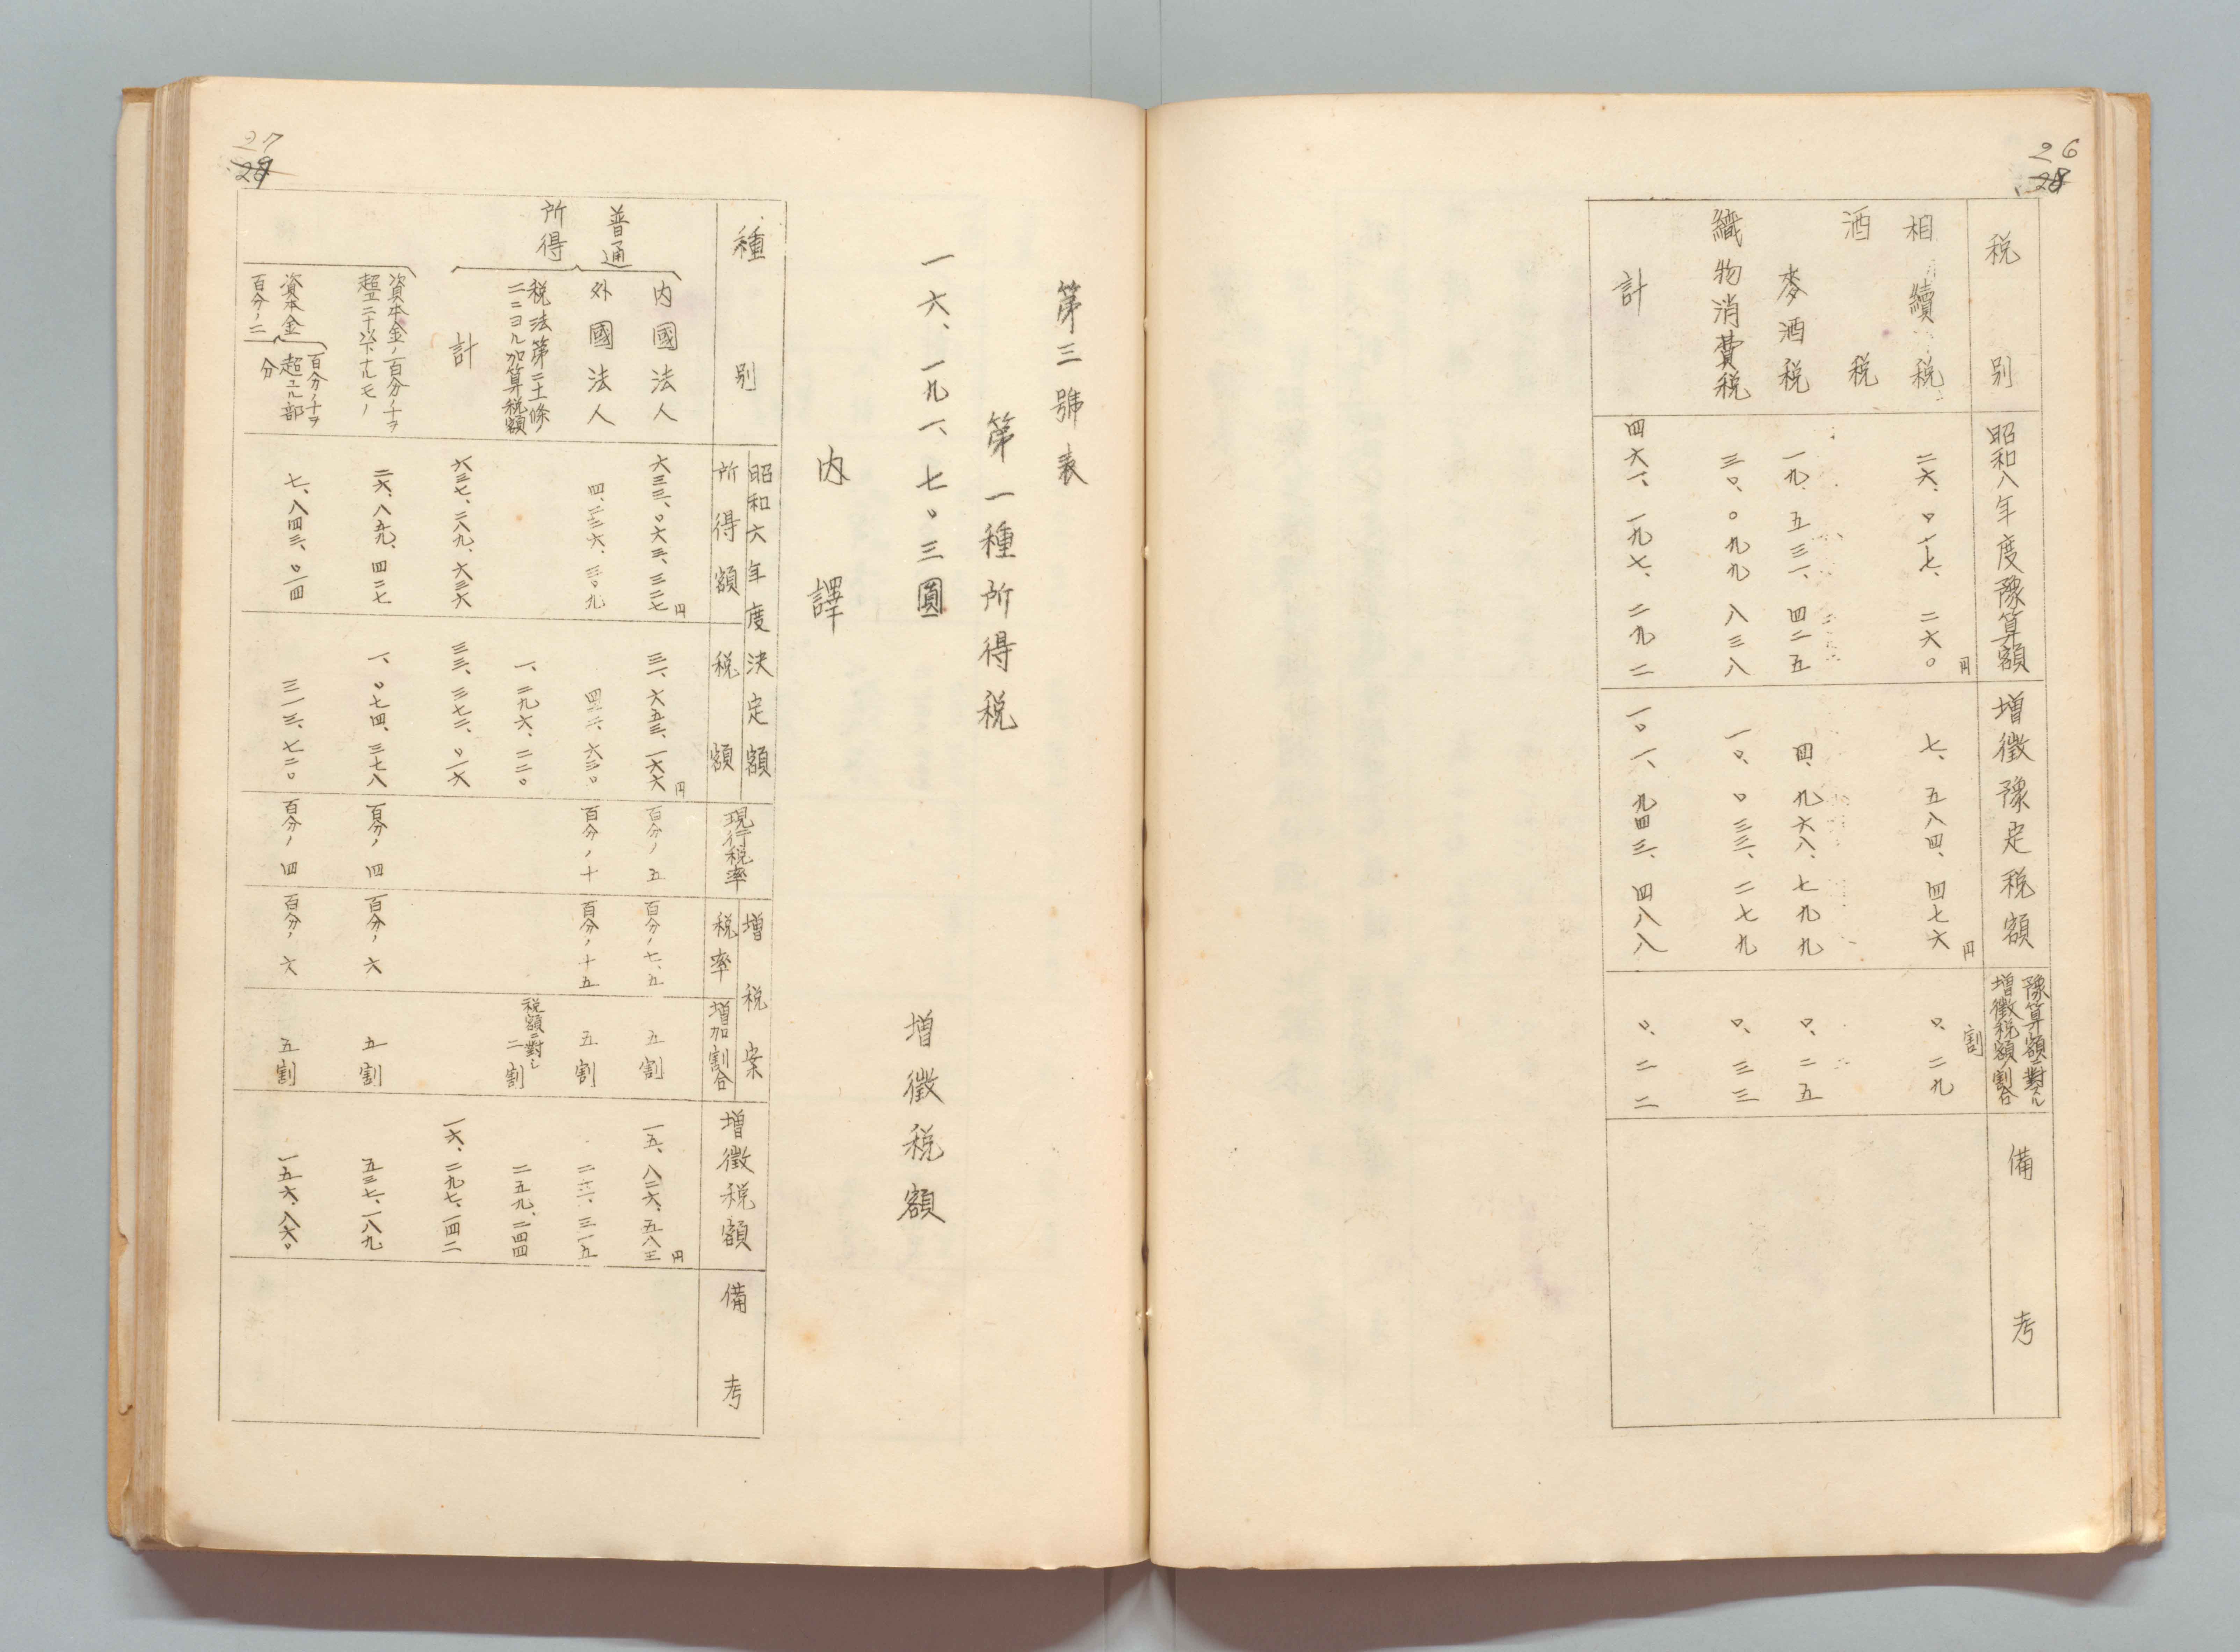 26
税別 昭和八年度豫算額 増徴豫定税額 豫算額ニ對スル増徴税額割合 備考
相續税 二六、〇一七、二六〇円 七、五八四、四七六円 〇、二九割
酒税
麥酒税 一九、五三一、四二五 四、九六八、七九九 〇、二五
織物消費税 三〇、〇九九八三八 一〇、〇三三、二七九 〇、三三
計 四六一、一九七、二九二 一〇一、九四三、四八八 〇、二二
27
第三號表
第一種所得税
一六、一九一、七〇三圓 増徴税額
内譯
種別 昭和六年度決定額 所得額 税額 現行税率 増税案 税率 増加割合 増徴税額 備考
普通所得
内國法人 六三三、〇六三、三二七円 三一、六五三、一六六円 百分ノ五 百分ノ七、五 五割 一五、八二六、五八三円
外國法人 四、二二六、三〇九 四二二、六三〇 百分ノ十 百分ノ十五 五割 二一一、三一五
税法第二十一條ノ二ニヨル加算税額 一、二九六、二二〇 税額ニ對シ二割 二五九、二四四
計 六三七、二八九、六三六 三三、三七二、〇一六 一六、二九七、一四二
資本金ノ百分ノ十ヲ超エ二十以下ナルモノ 二六、八五九、四二七 一、〇七四、三七八 百分ノ四 百分ノ六 五割 五三七、一八九
資本金百分ノ二 百分ノ十ヲ超エル部分 七、八四三、〇一四 三一三、七二〇 百分ノ四 百分ノ六 五割 一五六、八六〇